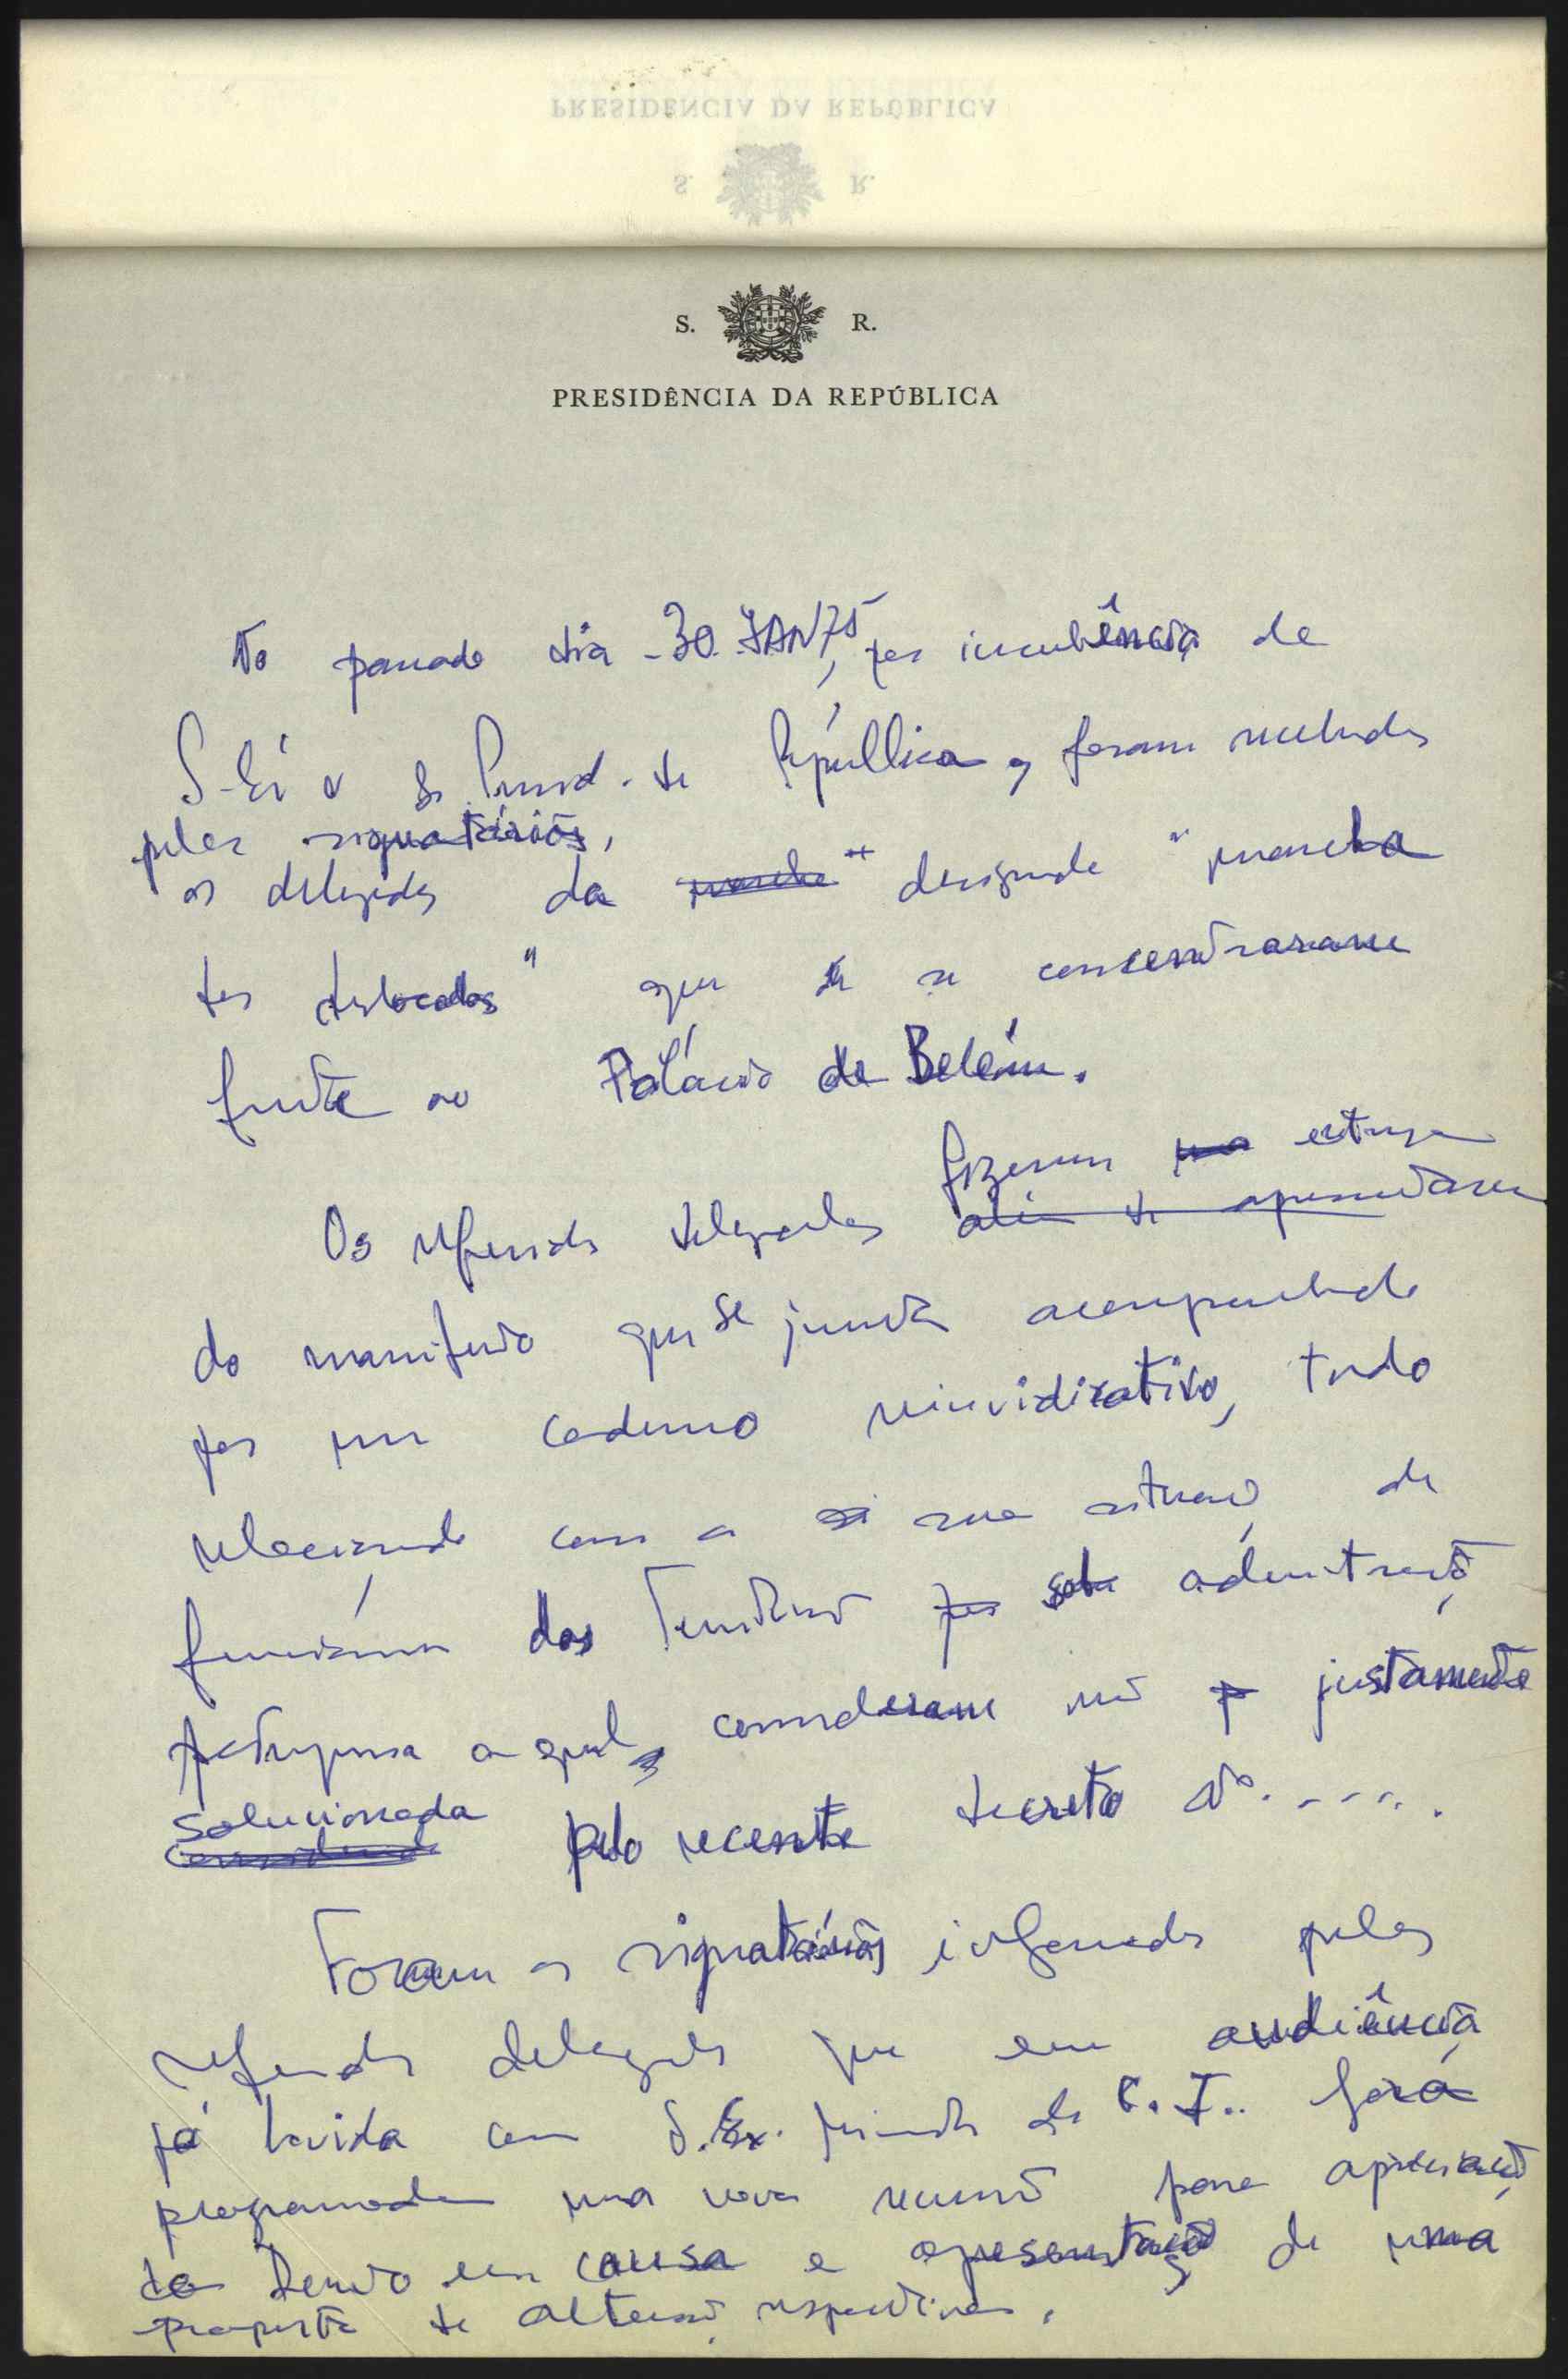 S. R.
PRESIDÊNCIA DA REPÚBLICA
No passado dia 30.JAN75, por incumbência de
S. Ex. o Sr. Presid. da República, foram recebidos
pelos signatários,
os delegados da marcha designada "marcha
dos deslocados" que se concentraram
frente ao Palácio de Belém.
fizeram entrega
Os referidos delegados além de apresentarem
do manifesto que se junta acompanhado
por um caderno reinvidicativo, tudo
relacionado com a sua situação de
funcionários dos Territórios sob administração
portuguesa a qual consideram não justamente
solucionada pelo recente decreto Nº. .....
Foram os signatários informados pelos
referidos delegados que em audiência
já havida com S. Ex. Ministro da C. I.. fora
programada uma nova reunião para apreciação
do Decreto em causa e apresentação de uma
proposta de alteração respectiva.